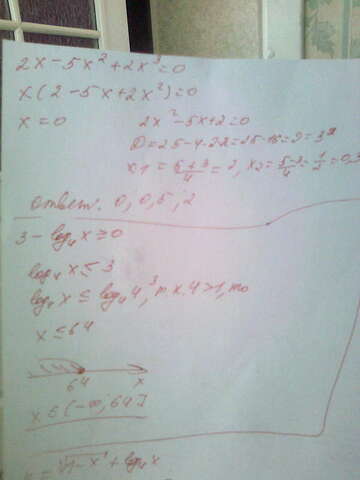 2x - 5x² + 2x³ = 0
x(2 - 5x + 2x²) = 0
x = 0 2x² - 5x + 2 = 0
D = 25 - 4·2·2 = 25 - 16 = 9 = 3²
x₁ = (5+3)/4 = 2, x₂ = (5-3)/4 = 1/2 = 0,5
ответ. 0, 0,5; 2
3 - log₄x ≥ 0
log₄x ≤ 3
log₄x ≤ log₄4³, т.к. 4 > 1, то
x ≤ 64
64 x
x ∈ (-∞; 64]
√1 - x² + log₄x